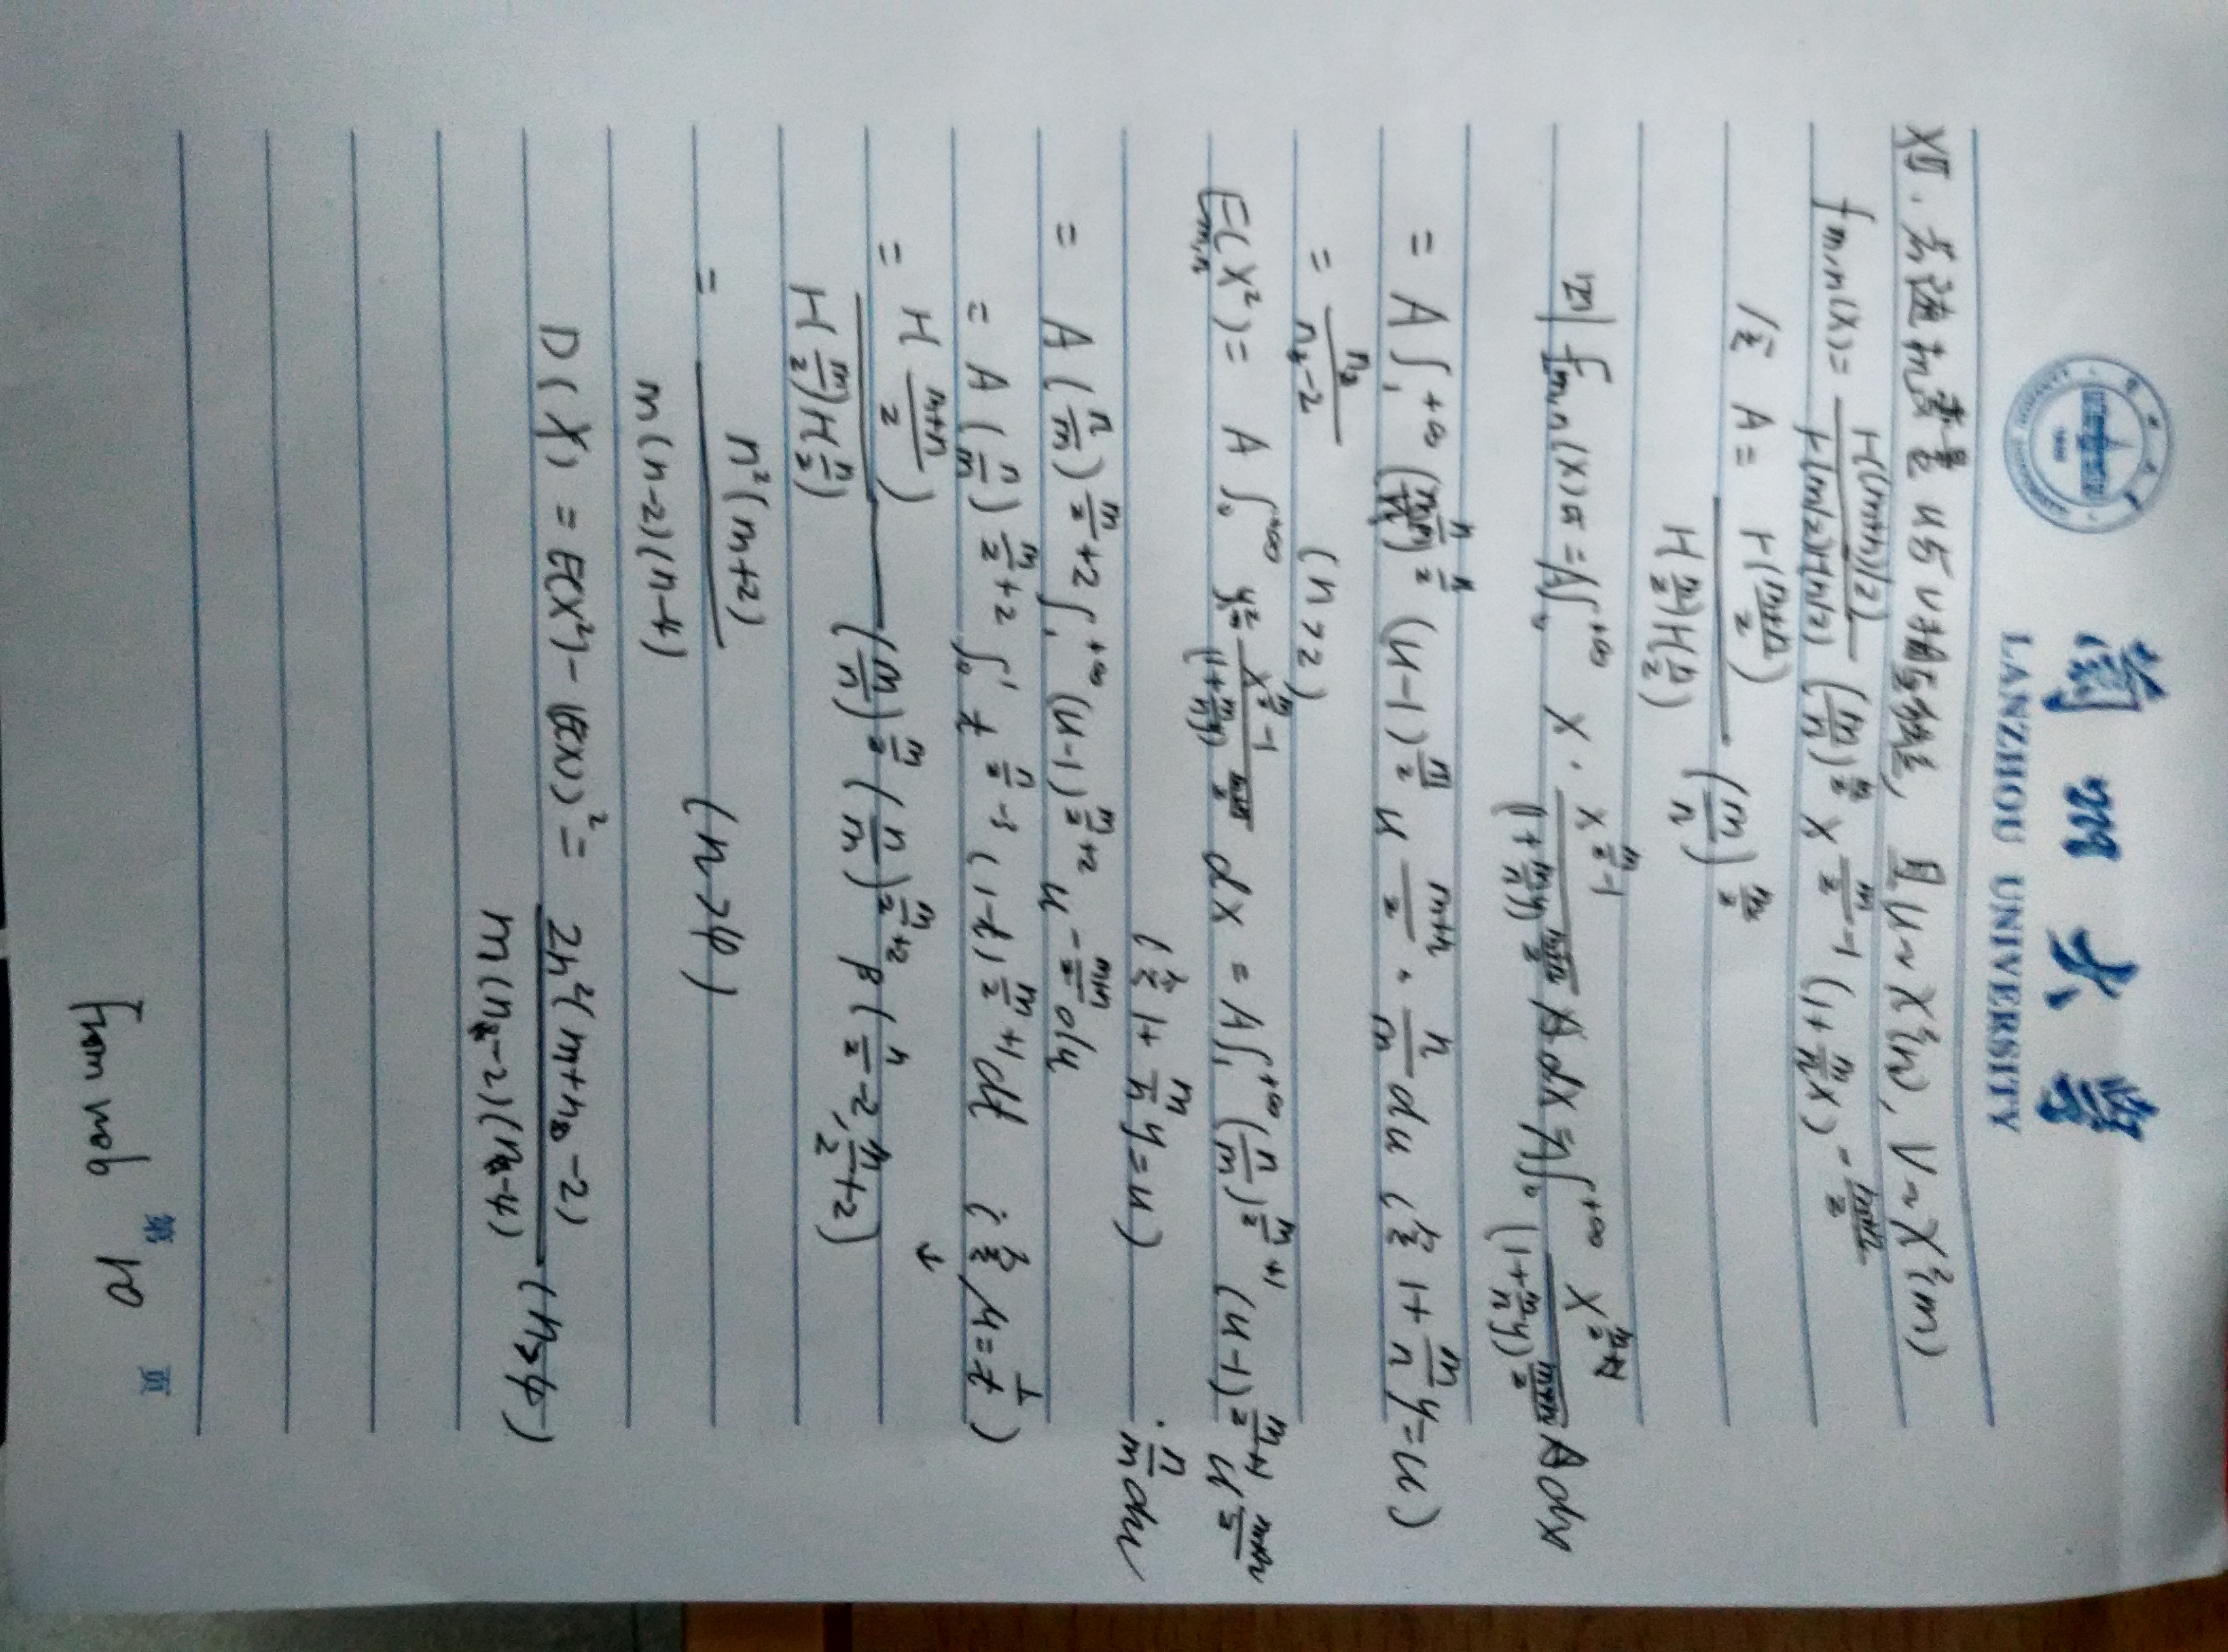 蘭州大學
LANZHOU UNIVERSITY
四. 若随机变量 u与v相互独立, 且 u~X²(n), V~X²(m)
f m,n(x) = H((m+n)/2) / H(m/2)H(n/2) (m/n)^{m/2} x^{m/2 -1} (1+ m/n x)^{- (m+n)/2}
记 A = H((m+n)/2) / H(m/2)H(n/2) (m/n)^{m/2}
则 f m,n(x) = A∫₀^{+∞} x · x^{m/2 -1} / (1+ m/n y)^{(m+n)/2} A dx = A∫₀^{+∞} x^{m/2} / (1+ m/n y)^{(m+n)/2} A dx
= A∫₁^{+∞} (n/m)^{m/2} (u-1)^{m/2} u^{(m+n)/2} · n/m du (记 1+ m/n y = u)
= n₂ / (n₂-2) (n>2)
E(x²) = A∫₀^{+∞} y² x^{m/2 -1} / (1+ m/n y)^{(m+n)/2} dx = A∫₁^{+∞} (n/m)^{m/2 +1} (u-1)^{m/2 +1} u^{(m+n)/2} · n/m du
(记 1+ m/n y = u)
= A (n/m)^{m/2 +2} ∫₁^{+∞} (u-1)^{m/2 +2} u^{- (m+n)/2} du
= A (n/m)^{m/2 +2} ∫₀¹ t^{n/2 -3} (1-t)^{m/2 +1} dt (记 u = 1/t)
= H((m+n)/2) / H(m/2)H(n/2) (m/n)^{m/2} (n/m)^{m/2 +2} β(n/2 -2, m/2 +2)
= n²(m+2) / m(n-2)(n-4) (n>4)
D(X) = E(x²) - (E(x))² = 2n²(m+n-2) / m(n₂-2)(n₂-4) (n>4)
第 10 页